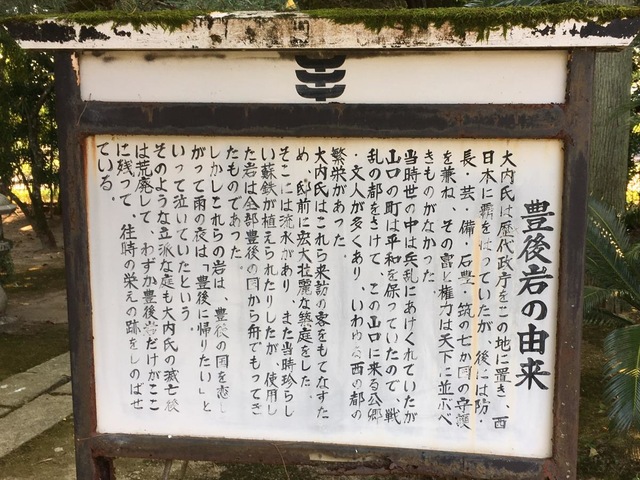 豊後岩の由来
大内氏は歴代政庁をこの地に置き、西
日本に覇をは っていたが 後には防・
長・芸 備 石豊 筑の七か国の守護
を兼ね、その富と権力は天下に並ぶべ
きものがなかった。
当時世の中は兵乱にあけくれていたが
山口の町は平和を保っていたので、戦
乱の都をさけて、この山口に来る公卿
・文人が多くあり、いわゆる西の都の
繁栄があった。
大内氏はこれら来訪の客をもてなすた
め 邸前に宏大壮麗な築庭をした。
そこには流水があり、また当時珍らし
い蘇鉄が植えられたりしたが、使用し
た岩は全部豊後の国から舟でもってき
たものであった
しかしこれらの岩は、豊後の国を恋し
がって雨の夜は「豊後に帰りたい」と
いって泣いていたという。
そのような立派な庭も大内氏の滅亡後
は荒廃して、わずか豊後岩だけがここ
に残って、往時の栄えの跡をしのばせ
ている。